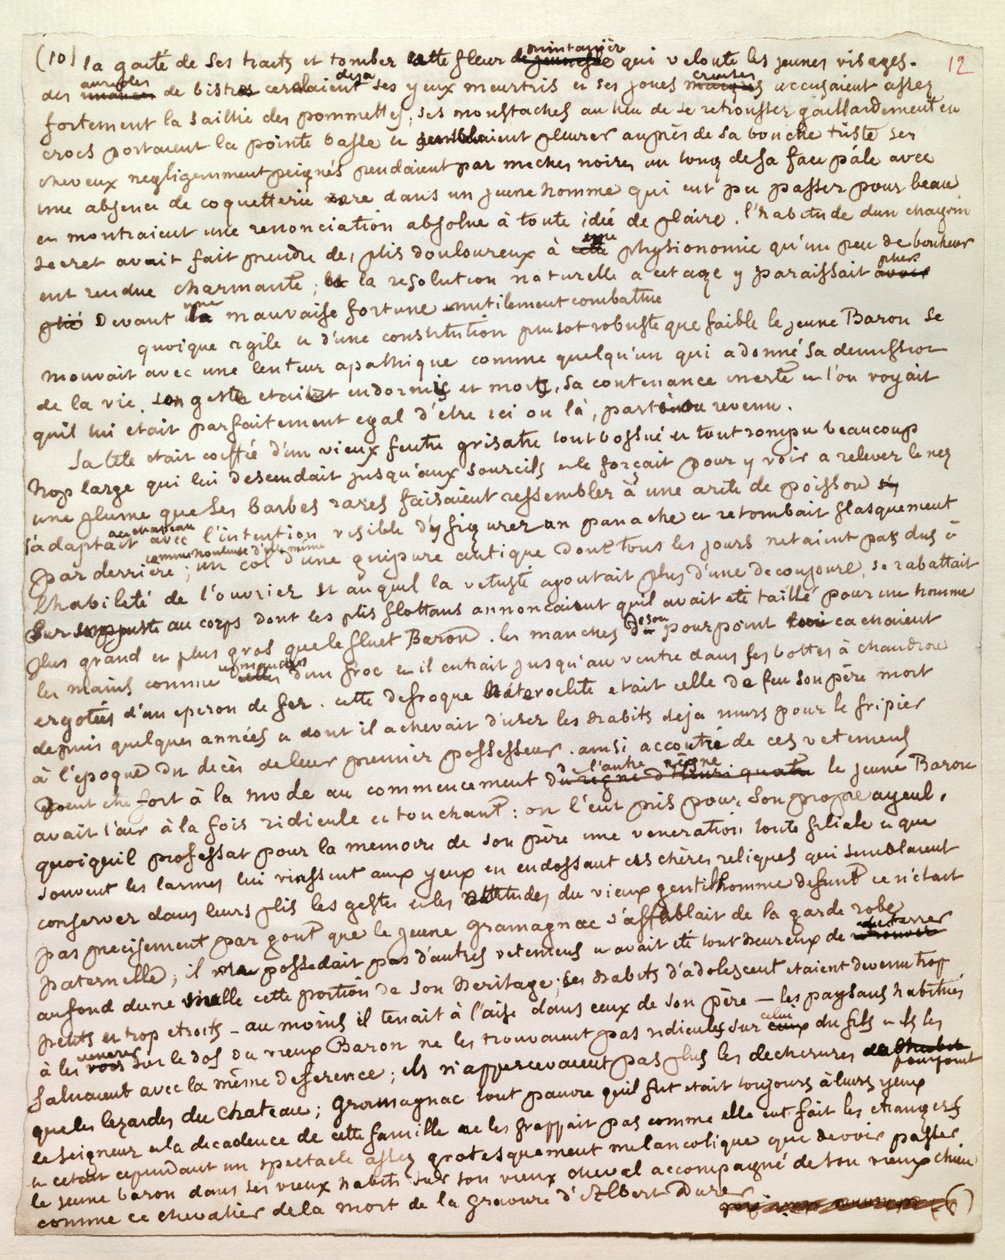 (10) la gaité de ses traits et tomber cette fleur printanière qui veloute les jeunes visages. 12
des auréoles de bistre cernaient déja ses yeux meurtris et ses joues creuses accusaient assez
fortement la saillie des pommettes, ses moustaches au lieu de se retrousser gaillardement en
crocs portaient la pointe basse et semblaient pleurer auprès de sa bouche triste ses
cheveux negligemment peignés pendaient par meches noires au long de sa face pâle avec
une absence de coquetterie rare dans un jeune homme qui eut pu passer pour beau
et montraient une renonciation absolue à toute idée de plaire. l'habitude d'un chagrin
secret avait fait prendre des plis douloureux à une physionomie qu'un peu de bonheur
eut rendue charmante, et la resolution naturelle a cet age y paraissait plier
devant une mauvaise fortune inutilement combattue
quoique agile et d'une constitution plutot robuste que faible le jeune Baron se
mouvait avec une lenteur apathique comme quelqu'un qui a donné sa demission
de la vie. son geste etait endormi et mort, sa contenance inerte et l'on voyait
qu'il lui etait parfaitement egal d'être ici ou là, parti ou revenu.
Sa tete etait coiffée d'un vieux feutre grisatre tout bossué et tout rompu beaucoup
trop large qui lui descendait jusqu'aux sourcils et le forçait pour y voir a relever le nez
une plume que ses barbes rares faisaient ressembler à une arete de poisson
s'adaptait au chapeau avec l'intention visible d'y figurer un panache et retombait flasquement
par derrière comme honteuse d'elle même; un col d'une guipure antique dont tous les jours n'etaient pas dus à
l'habileté de l'ouvrier et auquel la vetusté ajoutait plus d'une decoupure, se rabattait
sur son juste au corps dont les plis flottans annonçaient qu'il avait eté taillé pour un homme
plus grand et plus gros que le fluet Baron. les manches de son pourpoint cachaient
les mains comme les manches d'un froc et il entrait jusqu'au ventre dans ses bottes à chaudron
ergotées d'un eperon de fer. cette defroque hétéroclite etait celle de feu son père mort
depuis quelques années et dont il achevait d'user les habits deja murs pour le fripier
à l'epoque du decès de leur premier possesseur. ainsi accoutré de ces vetemens
peut etre fort à la mode au commencement de l'autre regne le jeune Baron
avait l'air à la fois ridicule et touchant: on l'eut pris pour son propre ayeul.
quoiqu'il professat pour la memoire de son père une veneration toute filiale et que
souvent les larmes lui vinssent aux yeux en endossant ces chères reliques qui semblaient
conserver dans leurs plis les gestes et les attitudes du vieux gentilhomme defunt ce n'etait
pas precisement par gout que le jeune Gramagnac s'affublait de la garde robe
paternelle; il ne possedait pas d'autres vetemens et avait eté tout heureux de deterrer
au fond d'une malle cette portion de son heritage; ses habits d'adolescent etaient devenu trop
petits et trop etroits - au moins il tenait à l'aise dans ceux de son père - les paysans habitués
à les venerer sur le dos du vieux Baron ne les trouvaient pas ridicules sur celui du fils et ils les
saluaient avec la même deference; ils n'appercevaient pas plus les dechirures du pourpoint
que les lezardes du chateau; Gramagnac tout pauvre qu'il fut etait toujours à leurs yeux
le seigneur et la decadence de cette famille ne les frappait pas comme elle eut fait les etrangers
et c'etait cependant un spectacle assez grotesquement melancolique que de voir passer
le jeune baron dans ses vieux habits sur son vieux cheval accompagné de son vieux chien
comme ce chevalier de la mort de la gravure d'Albert Durer.